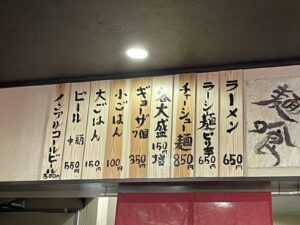 ラーメン 650円
ラーシ麺ピリ辛 650円
チャーシュー麺 850円
各大盛 150円増
ギョーザ7個 350円
小ごはん 100円
大ごはん 150円
ビール 中瓶 550円
ノンアルコールビール 300円
麺